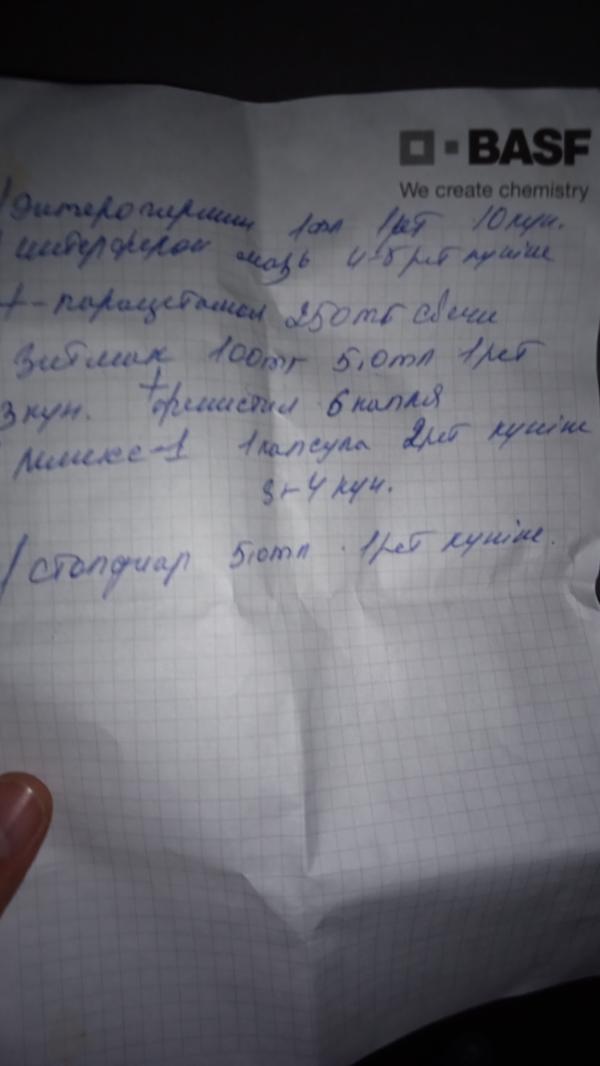 BASF
We create chemistry
Энтерогермин 1фл 1рет 10 күн.
Интерферон мазь 4-5 рет күніне
t- парацетамол 250мг свечи
Зитмак 100мг 5,0мл 1рет
3 күн. + фенистил 6 капля
1капсула 2рет күніне
3-4 күн.
Стопдиар 5,0мл 1рет күніне.